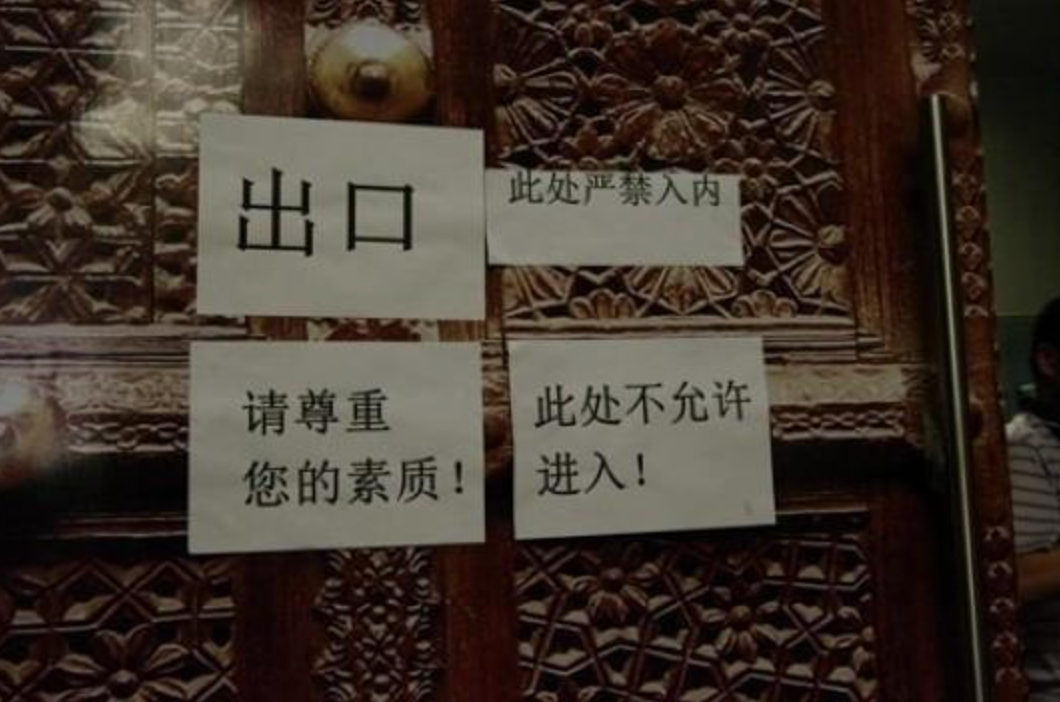 出口
此处严禁入内
请尊重
您的素质!
此处不允许
进入!